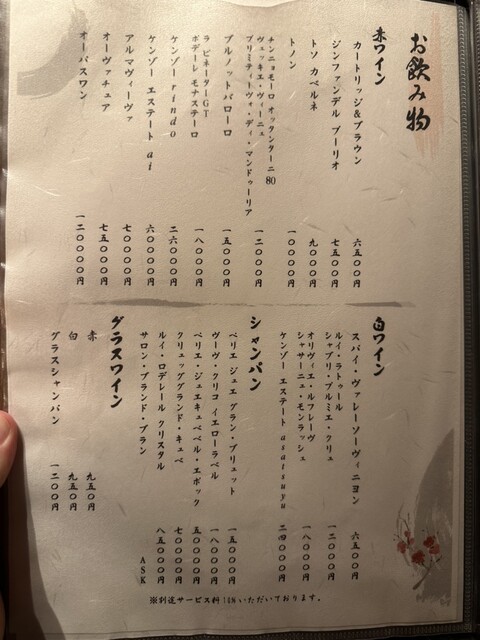 お飲み物
赤ワイン
カートリッジ&ブラウン 六五〇〇円
ジンファンデル ブーリオ 七五〇〇円
トソ カベルネ 九〇〇〇円
トノン 一〇〇〇〇円
チンニョモーロ オッタンターニ 80
ヴェッキエ・ヴィーニェ
プリミティーヴォ・ディ・マンドゥーリア 一二〇〇〇円
ブルノットバローロ 一五〇〇〇円
ラ ピネーターGT
ボデーレ モナステーロ 一八〇〇〇円
ケンゾー rindo 二六〇〇〇円
ケンゾー エステート ai 六〇〇〇〇円
アルマヴィーヴァ 七〇〇〇〇円
オーヴァチュア 七五〇〇〇円
オーパスワン 一二〇〇〇〇円
白ワイン
スパイ・ヴァレーソーヴィニヨン 六五〇〇円
ルイ・ラトゥール
シャブリ・プルミエ・クリュ 一二〇〇〇円
オリヴィエ・ルフレーヴ
シャサーニュ・モンラッシュ 一八〇〇〇円
ケンゾー エステート asatsuyu 二四〇〇〇円
シャンパン
ペリエ ジュエ グラン・ブリュット 一五〇〇〇円
ヴーヴ・クリコ イエローラベル 一八〇〇〇円
ペリエ・ジュエキュベベル・エポック 五〇〇〇〇円
クリュッググランド・キュベ 七〇〇〇〇円
ルイ・ロデレール クリスタル 八五〇〇〇円
サロン・ブランド・ブラン ASK
グラスワイン
赤 九五〇円
白 九五〇円
グラスシャンパン 一二〇〇円
※別途サービス料10%いただいております。